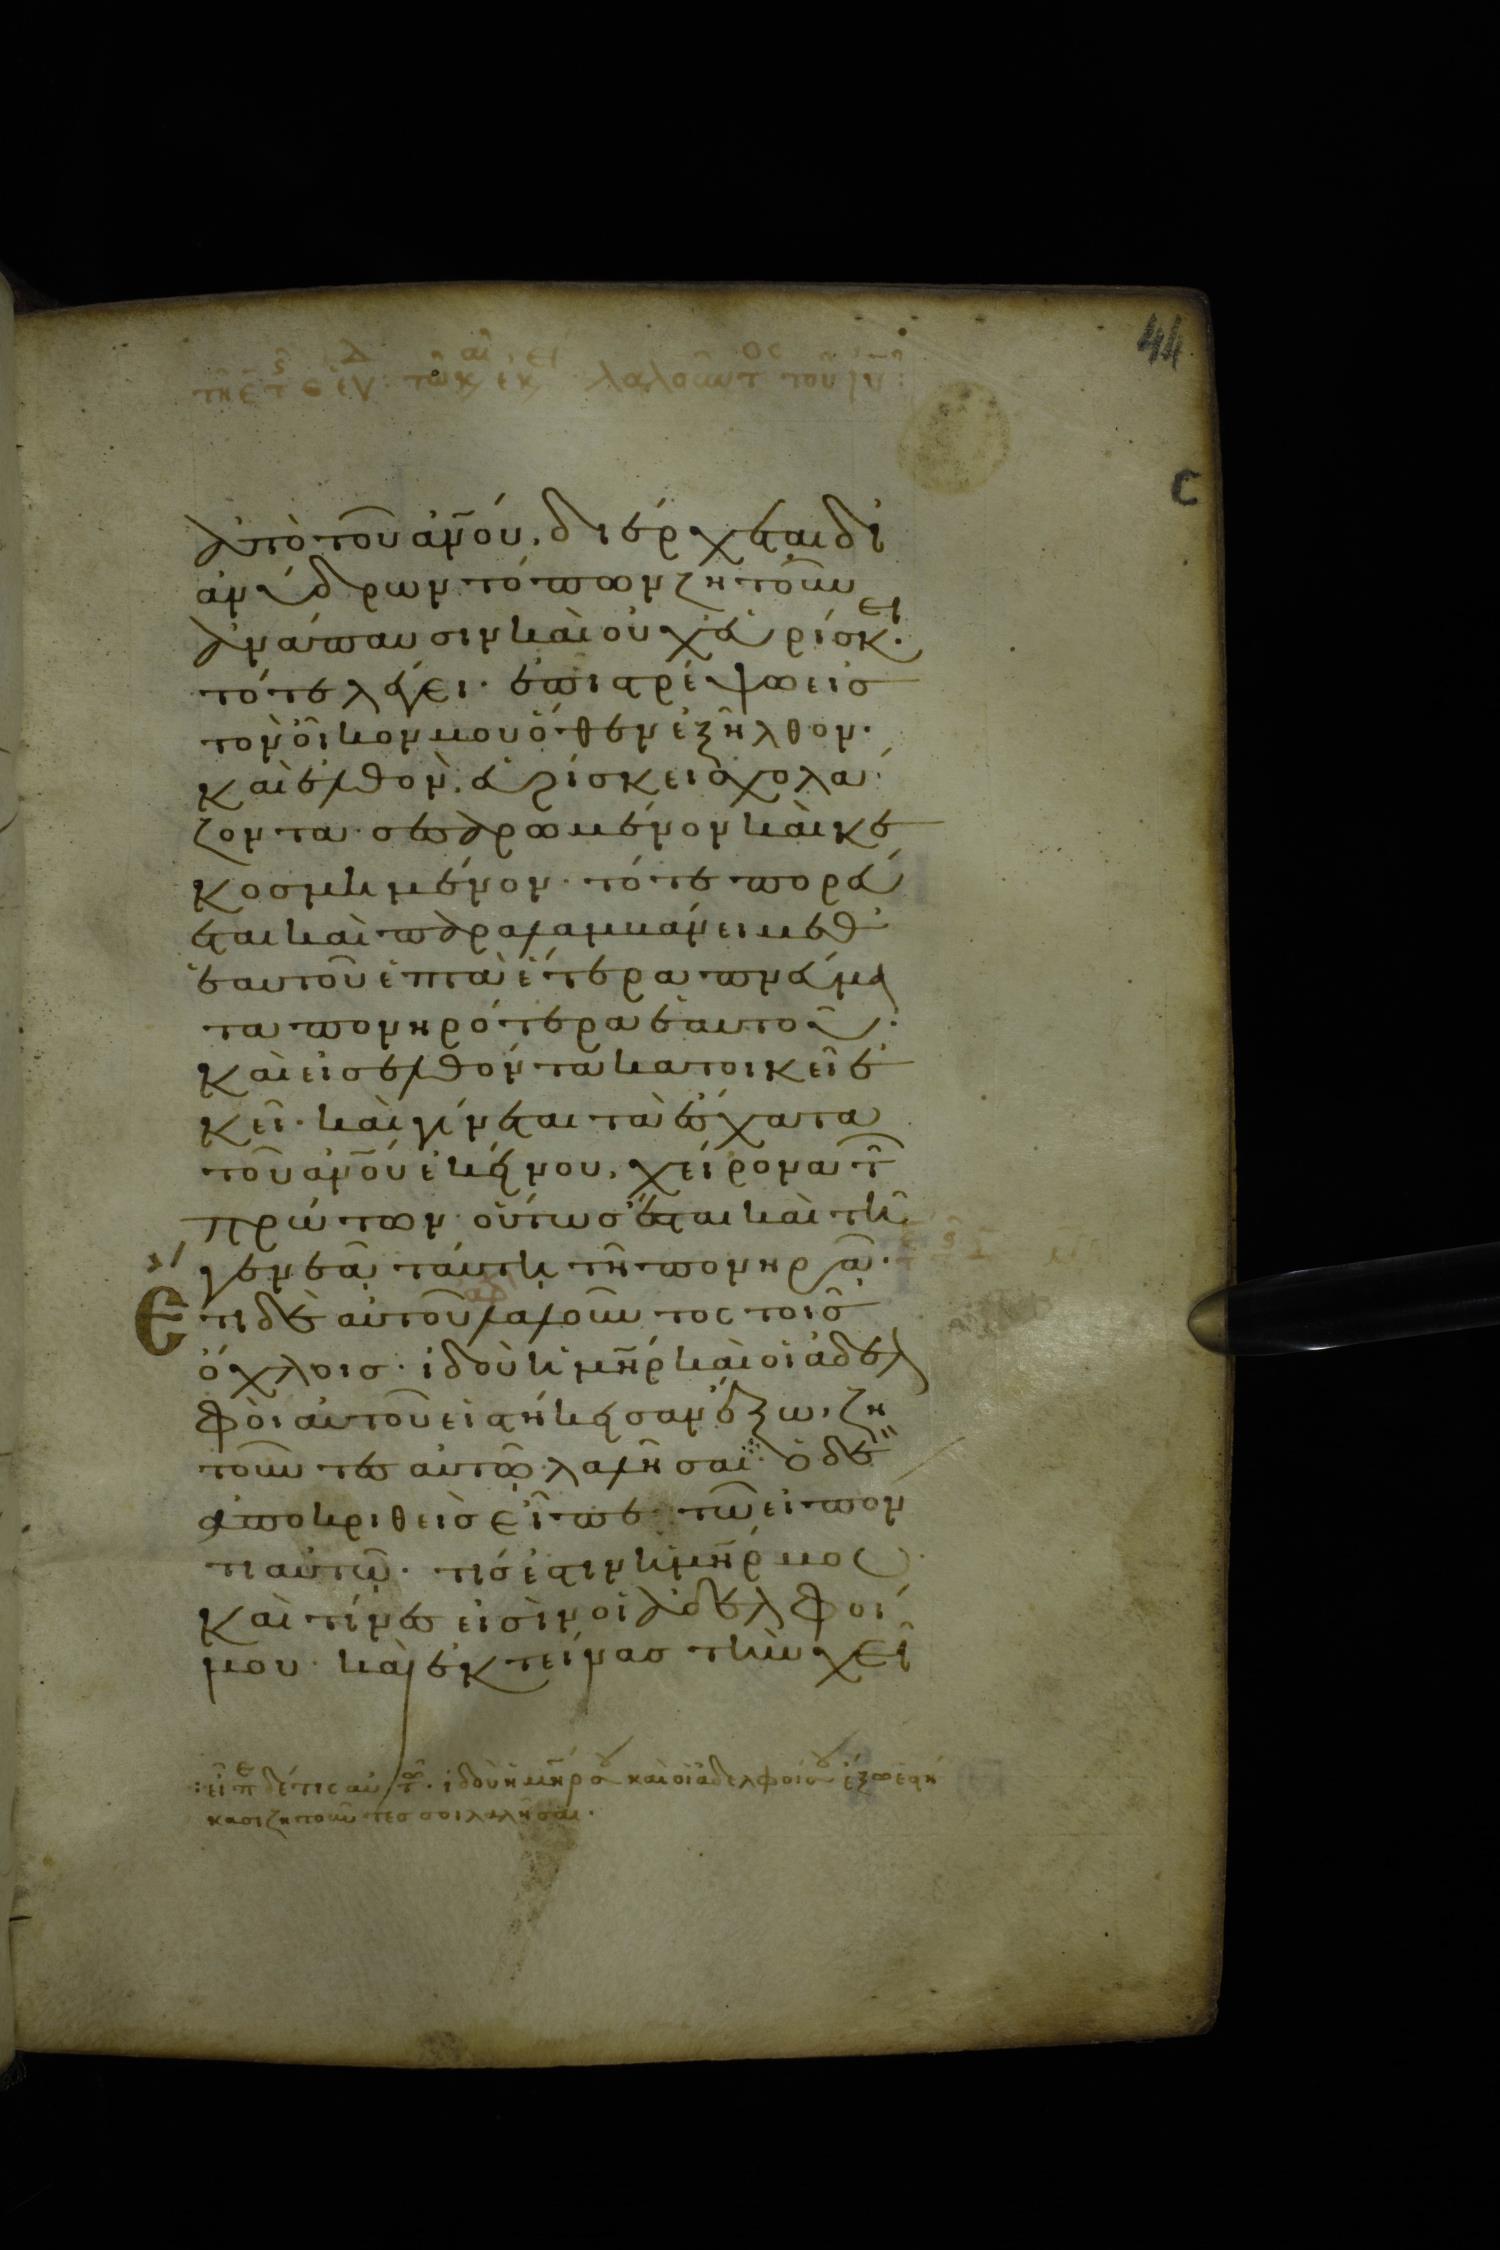 ἀπὸ τοῦ ἀν̅ου, διέρχεται δι
ἀνύδρων τόπων ζητοῦν
ἀνάπαυσιν καὶ οὐχ εὑρίσκει.
τότε λέγει· ἐπιστρέψω εἰσ
τὸν οἶκον μου ὅθεν ἐξῆλθον·
καὶ ἐλθὸν, εὑρίσκει σχολά
ζοντα· σεσαρωμένον καὶ κε
κοσμημένον· τότε πορεύ
εται καὶ παραλαμβάνει μεθ
ἑαυτοῦ ἑπτὰ ἕτερα πνεύμα
τα πονηρότερα ἑαυτοῦ·
καὶ εἰσελθόντα κατοικεῖ ἐ
κεῖ· καὶ γίνεται τὰ ἔσχατα
τοῦ ἀν̅ου ἐκείνου, χείρονα τῶ
πρώτων· οὕτωσ ἔσται καὶ τῆ
γενεᾷ ταύτῃ τῇ πονηρᾷ·
Ετι δὲ αὐτοῦ λαλοῦντος τοῖσ
ὄχλοισ· ἰδοὺ ἡ μη̅ρ καὶ οἱ ἀδελ
φοὶ αὐτοῦ εἱστήκεισαν ἔξω, ζη
τοῦντεσ αὐτῷ λαλῆσαι· ὁ δὲ
ἀποκριθεὶσ εἶπε· τῶ εἰπόν
τι αὐτῷ· τίσ ἐστιν ἡ μη̅ρ μου
καὶ τίνεσ εἰσὶν οἱ ἀδελφοί
μου· καὶ ἐκτείνασ τὴν χεῖ
εἶπε δέ τις αὐτῶ· ἰδοὺ ἡ μη̅ρ σου καὶ οἱ ἀδελφοί σου ἔξω ἑστή
κασι ζητοῦντεσ σοι λαλῆσαι·